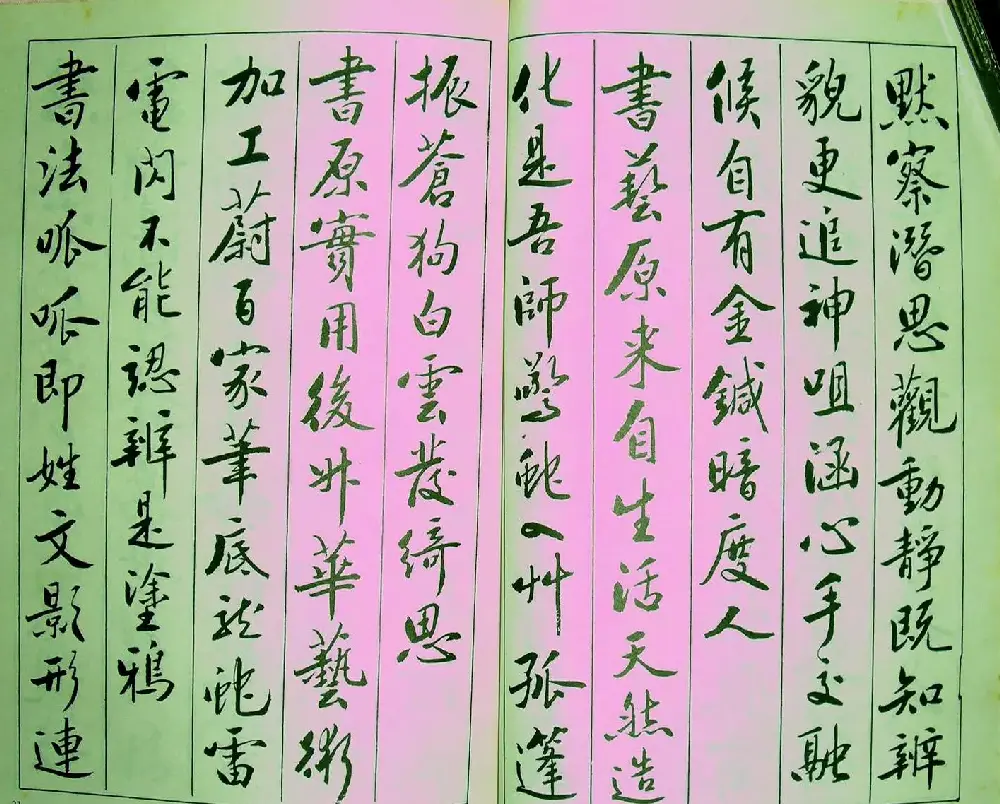 默察潛思觀動靜既知辨
貌更追神咀涵心手交融
候自有金鍼暗度人
書藝原来自生活天然造
化是吾師驚蛇入艸孤蓬
振蒼狗白雲發綺思
書原實用後升華藝術
加工蔚百家筆底龍蛇雷
電閃不能認辨是塗鴉
書法呱呱即姓文影形連